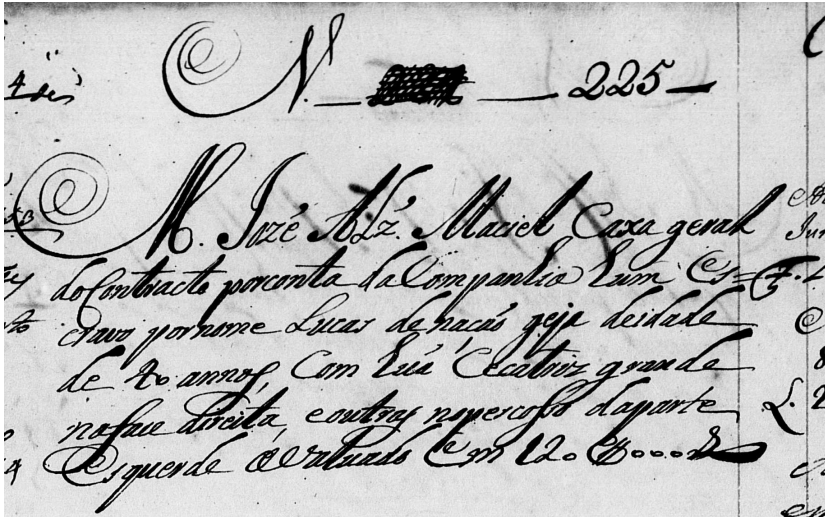 N. — 225 —
M. Jozé Alz. Maciel Caxa geral
do Contracto porconta da Companhia hum Es=
cravo pornome Lucas de naçaõ geja deidade
de 20 annos, Com huã Cecatriz grande
naface direita, e outras nopercoso daparte
Esquerde Avaluado Em 120$000 rs